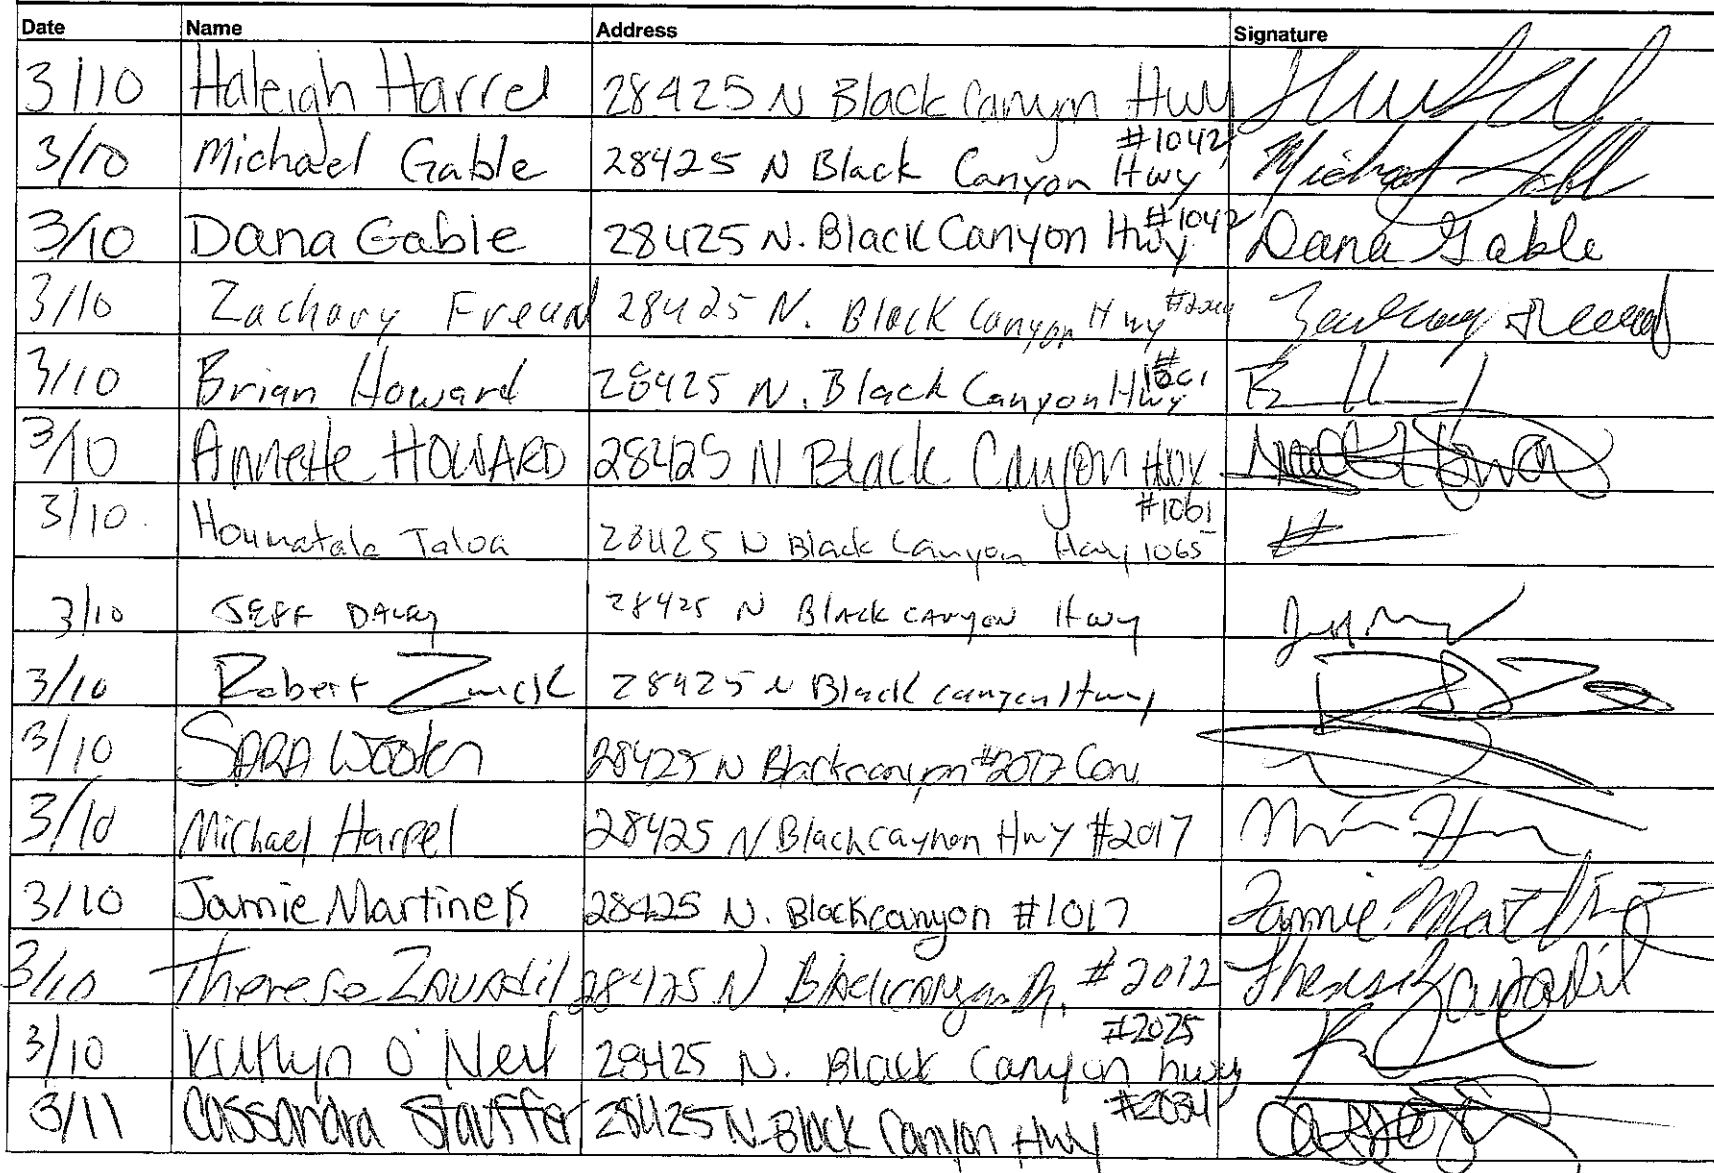 Date Name Address Signature
3/10 Haleigh Harrel 28425 N Black Canyon Hwy
3/10 Michael Gable 28425 N Black Canyon Hwy #1042 Michael Gable
3/10 Dana Gable 28425 N. Black Canyon Hwy #1042 Dana Gable
3/10 Zachary Freund 28425 N. Black Canyon Hwy Zachary Freund
3/10 Brian Howard 28425 N. Black Canyon Hwy
3/10 Annette HOWARD 28425 N Black Canyon HWY #1061
3/10 Hounatale Taloa 28425 N Black Canyon Hwy 1065
3/10 JEFF DALEY 28425 N Black CANYON Hwy
3/10 Robert 28425 N Black canyon Hwy
3/10 SARA Wooten 28425 N Blackcanyon #2017
3/10 Michael Harrel 28425 N Blackcaynon Hwy #2017
3/10 Jamie Martinek 28425 N. Blackcanyon #1017 Jamie
3/10 Therese Zavadil 28425 N #2012 Therese Zavadil
3/10 Kutlyn O'Neil 28425 N. Black Canyon hwy #2025
3/11 Cassandra Stauffer 28425 N. Black Canyon Hwy #2034